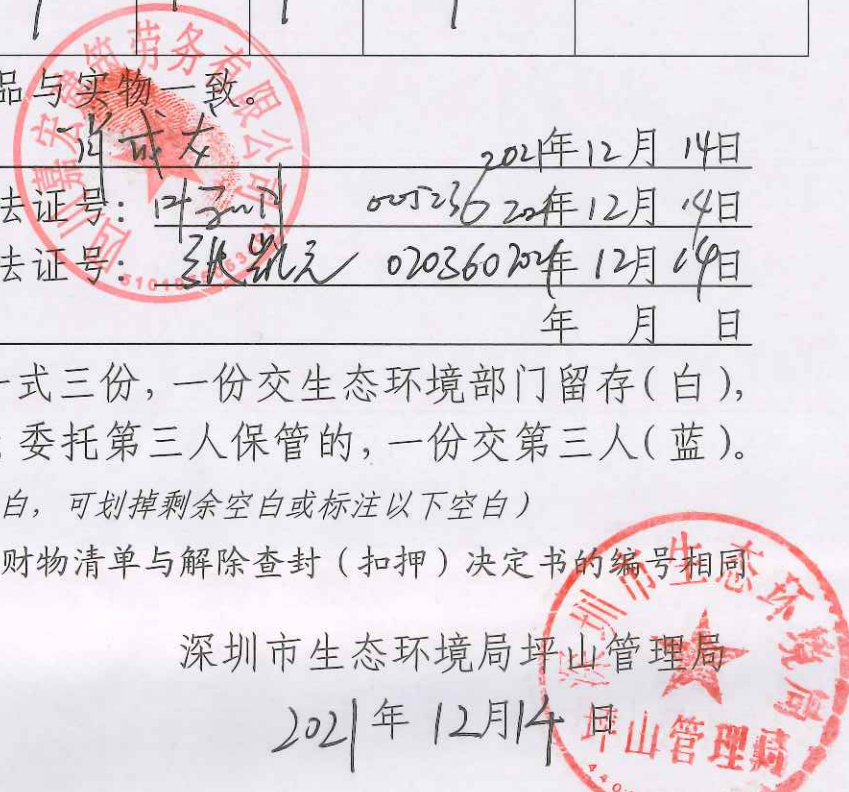 品与实物一致。
2021年12月14日
法证号: 005236 2021年12月14日
法证号: 020360 2021年12月14日
年 月 日
一式三份，一份交生态环境部门留存(白)，
；委托第三人保管的，一份交第三人(蓝)。
白，可划掉剩余空白或标注以下空白)
财物清单与解除查封(扣押)决定书的编号相同
深圳市生态环境局坪山管理局
2021年12月14日
四川嘉宏建筑劳务有限公司
深圳市生态环境局
坪山管理局